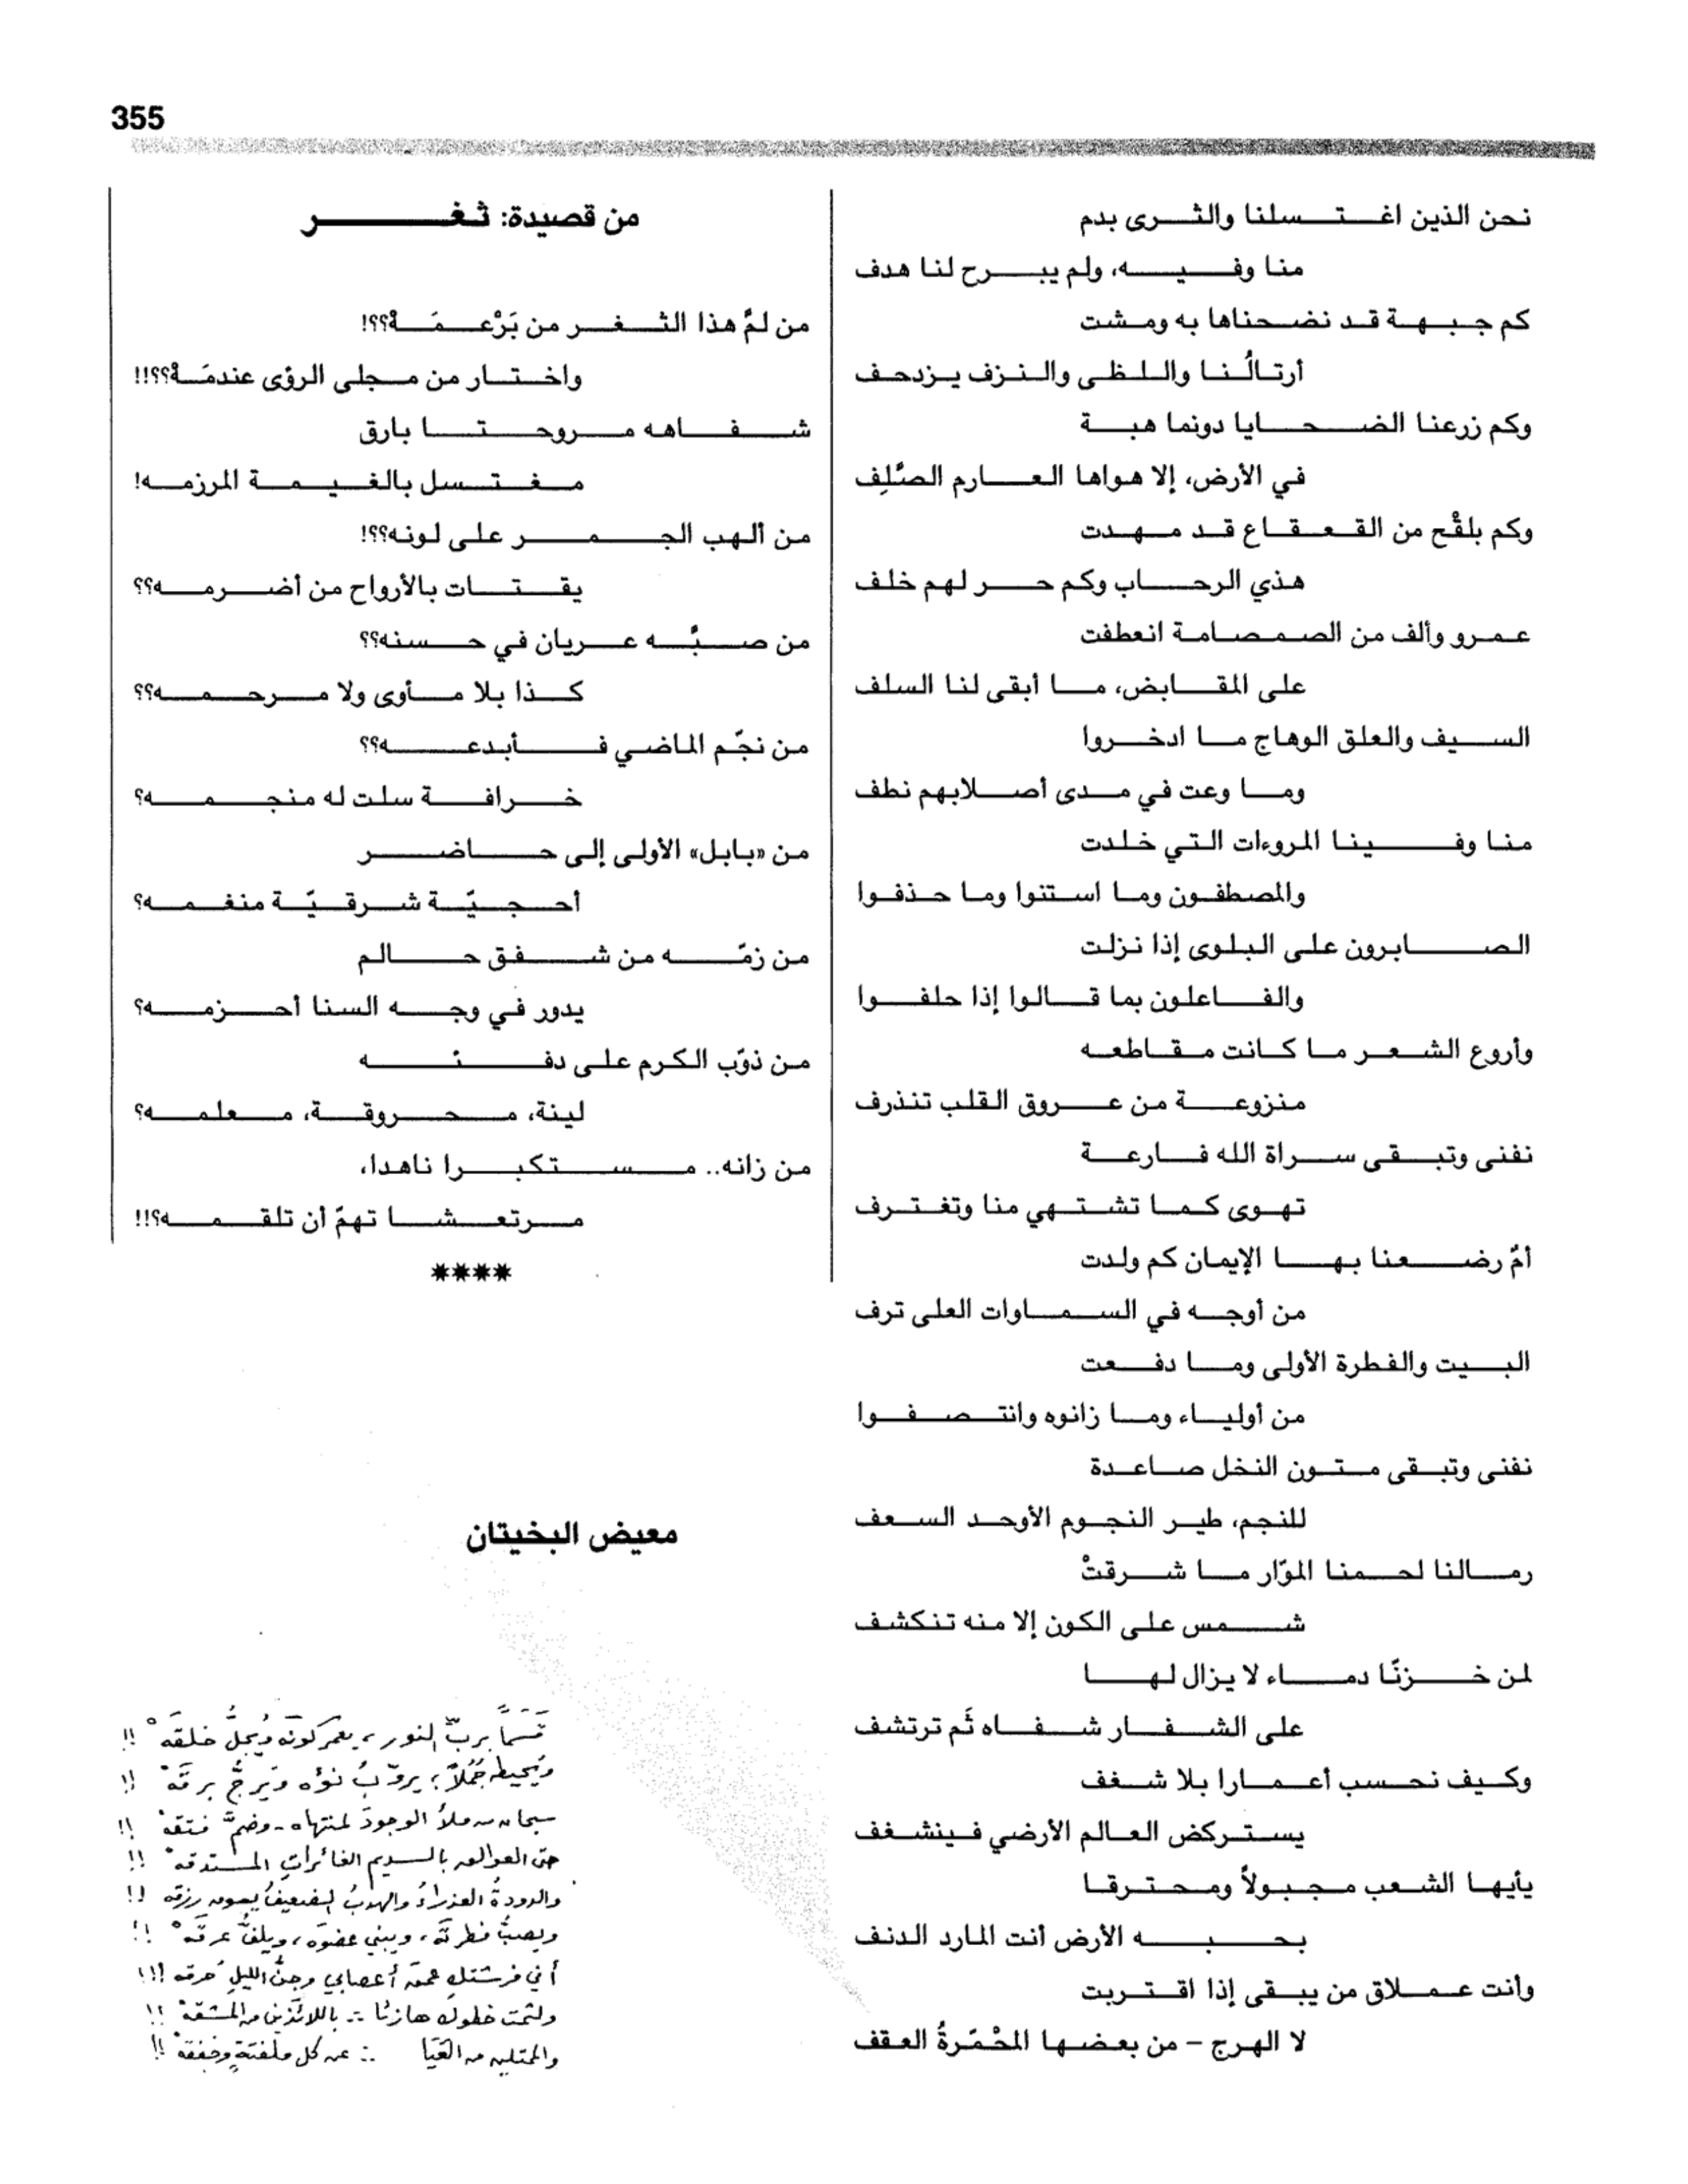 355
نحن الذين اغتسلنا والثرى بدم
منا وفيه، ولم يبرح لنا هدف
كم جبهة قد نضحناها به ومشت
أرتالُنا واللظى والنزف يزدحف
وكم زرعنا الضحايا دونما هبة
في الأرض، إلا هواها العارم الصَّلِف
وكم بلقْح من القعقاع قد مهدت
هذي الرحاب وكم حر لهم خلف
عمرو وألف من الصمصامة انعطفت
على المقابض، ما أبقى لنا السلف
السيف والعلق الوهاج ما ادخروا
وما وعت في مدى أصلابهم نطف
منا وفينا المروءات التي خلدت
والمصطفون وما استنوا وما حذفوا
الصابرون على البلوى إذا نزلت
والفاعلون بما قالوا إذا حلفوا
وأروع الشعر ما كانت مقاطعه
منزوعة من عروق القلب تنذرف
نفنى وتبقى سراة الله فارعة
تهوى كما تشتهي منا وتغترف
أمّ رضعنا بها الإيمان كم ولدت
من أوجه في السماوات العلى ترف
البيت والفطرة الأولى وما دفعت
من أولياء وما زانوه وانتصفوا
نفنى وتبقى متون النخل صاعدة
للنجم، طير النجوم الأوحد السعف
رمالنا لحمنا الموّار ما شرقتْ
شمس على الكون إلا منه تنكشف
لمن خزنّا دماء لا يزال لها
على الشفار شفاه ثَم ترتشف
وكيف نحسب أعمارا بلا شغف
يستركض العالم الأرضي فينشغف
يأيها الشعب مجبولاً ومحترقا
بحبه الأرض أنت المارد الدنف
وأنت عملاق من يبقى إذا اقتربت
لا الهرج – من بعضها المحْمَرةُ العقف
من قصيدة: ثغر
من لمَّ هذا الثغر من بَرْعمَهْ؟؟!
واختار من مجلى الرؤى عندمَهْ؟؟!!
شفاهه مروحتا بارق
مغتسل بالغيمة المرزمه!
من ألهب الجمر على لونه؟؟!
يقتات بالأرواح من أضرمه؟؟
من صبَّه عريان في حسنه؟؟
كذا بلا مأوى ولا مرحمه؟؟
من نجّم الماضي فأبدعه؟؟
خرافة سلت له منجمه؟
من «بابل» الأولى إلى حاضر
أحجيّة شرقيّة منغمه؟
من زمّه من شفق حالم
يدور في وجه السنا أحزمه؟
من ذوّب الكرم على دفئه
لينة، محروقة، معلمه؟
من زانه.. مستكبرا ناهدا،
مرتعشا تهمّ أن تلقمه؟!!
****
معيض البخيتان
قسماً بربّ النور، يعمر كونه ويجلُّ خلقه !!
ويحيط جُملاً، يروّب نوؤه ويرجّ برقه !!
سبحان من ملأ الوجود لمنتهاه - وضمّ فتقه !!
حتى العوالم بالسديم الغائرات المستدقه !!
والدودةُ العذراءُ والهدبُ الضعيفُ يصون رزقه !!
ويصبُّ فطرته، ويبني عضوه، ويلفُّ عرقه !!
أني فرشتك عمق أعصابي وجنُّ الليل حرقه !!!
ولثمت خطوك هازئا .. باللائذين من المشقّه !!